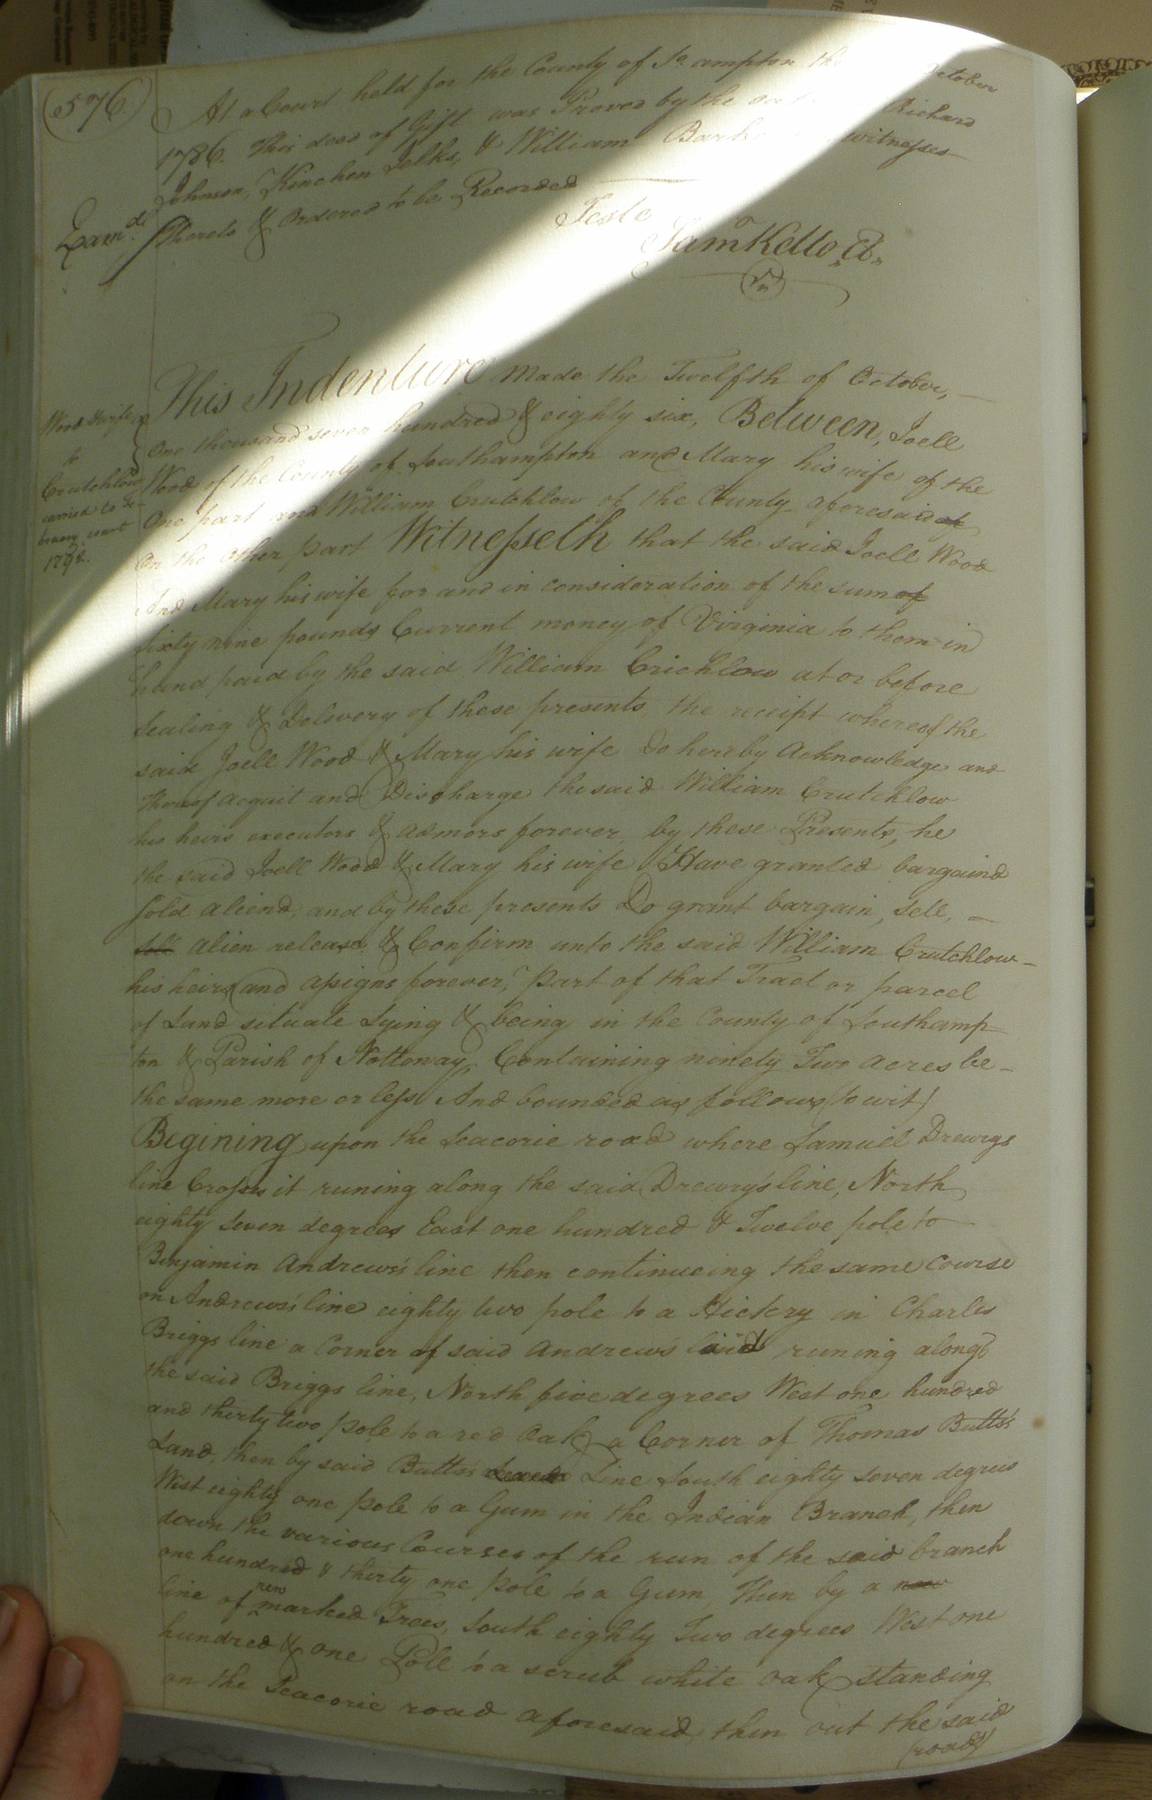 576
At a Court held for the County of So ampton the October
1786. This deed of Gift was Proved by the oath Richard
Johnson, Kinchen Jelks, & William Bark witnesses
Exam.d Thereto & Ordered to be Recorded
Teste
Sam Kello, Ct.
This Indenture made the Twelfth of October,
Wood & wife to Crutchlow carried to
court 1792.
One thousand seven hundred & eighty six, Between, Joell
Wood of the County of Southampton and Mary his wife of the
One part and William Crutchlow of the County aforesaid of
on the other part Witnesseth that the said Joell Wood
And Mary his wife for and in consideration of the sum of
sixty nine pounds Current money of Virginia to them in
hand paid by the said William Crichlow at or before
Sealing & Delivery of these presents, the receipt whereof the
said Joell Wood & Mary his wife Do hereby Acknowledge and
thereof acquit and Discharge the said William Crutchlow
his heirs executors & admors forever, by these Presents, he
the said Joell Wood & Mary his wife Have granted bargaind
Sold aliend, and by these presents Do grant bargain, Sell,
sell alien release & Confirm unto the said William Crutchlow
his heirs and assigns forever, part of that Tract or parcel
of Land situate Lying & being in the County of Southamp
ton & Parish of Nottoway, Containing ninety Two acres be
the same more or less And bounded as follows (to wit)
Begining upon the Seacorie road where Samuel Drewrys
line Crosses it runing along the said Drewry's line, North
eighty seven degrees East one hundred & Twelve pole to
Benjamin Andrews's line then continueing the same course
on Andrews's line eighty two pole to a Hickory in Charles
Briggs line a Corner of said Andrews's laid runing along
the said Briggs line, North five degrees West one hundred
and thirty two pole to a red Oak, a Corner of Thomas Butts's
Land, then by said Butts's Line South eighty seven degrees
West eighty one pole to a Gum in the Indian Branch, then
down the various Courses of the run of the said branch
one hundred & thirty one pole to a Gum, then by a new
line of new marked Trees, South eighty Two degrees West one
hundred & one Pole to a scrub white oak standing
on the Seacorie road aforesaid, then out the said
(road)